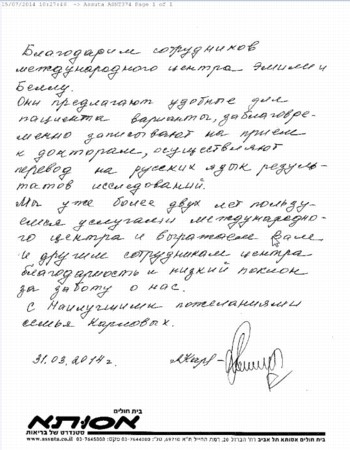 15/07/2014 10:27:40 -> Assuta Page 1 of 1
Благодарим сотрудников
международного центра Эмили и
Беллу.
Они предлагают удобные для
пациента варианты, заблаговре-
менно записывают на прием
к докторам, осуществляют
перевод на русский язык резуль-
татов исследований.
Мы уже более двух лет пользу-
емся услугами международно-
го центра и выражаем Вам
и другим сотрудникам центра
благодарность и низкий поклон
за заботу о нас.
С Наилучшими пожеланиями
семья Карповых.
31.03.2014г.
בית חולים
אסותא
סטנדרט של בריאות
בית חולים אסותא תל אביב רח' הברזל 20, רמת החייל ת"א 69710, טל: 03-7644000 פקס: www.assuta.co.il